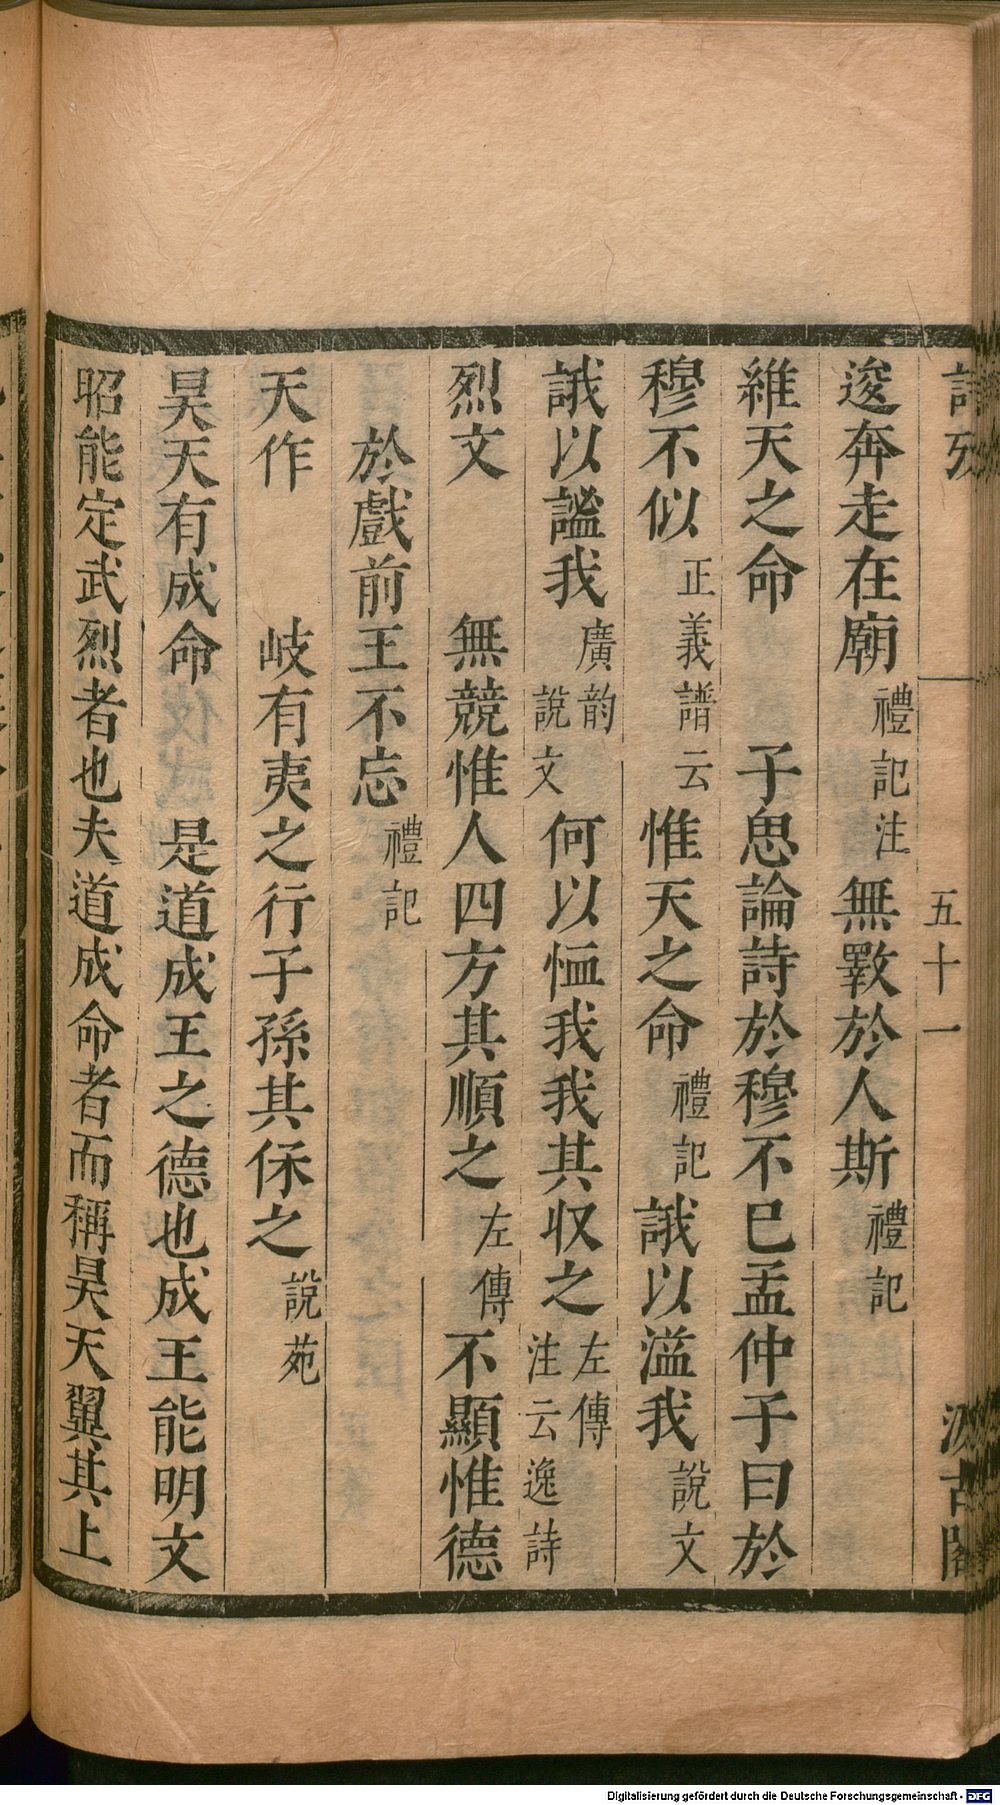 詩攷 五十一 汲古閣
逡奔走在廟 禮記注 無斁於人斯 禮記
維天之命 子思論詩於穆不已孟仲子曰於
穆不似 正義譜云 惟天之命 禮記 誐以溢我 說文
誐以謐我 廣韵 說文 何以恤我我其収之 左傳 注云逸詩
烈文 無競惟人四方其順之 左傳 不顯惟德
於戲前王不忘 禮記
天作 岐有夷之行子孫其保之 說苑
昊天有成命 是道成王之德也成王能明文
昭能定武烈者也夫道成命者而稱昊天翼其上
Digitalisierung gefördert durch die Deutsche Forschungsgemeinschaft - DFG